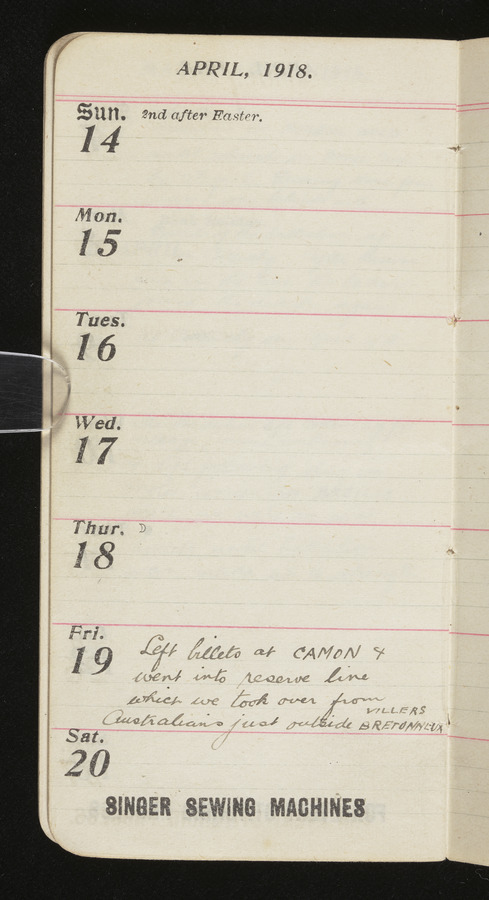 APRIL, 1918.
Sun. 2nd after Easter.
14
Mon.
15
Tues.
16
Wed.
17
Thur. D
18
Fri.
19 Left billets at CAMON &
went into reserve line
which we took over from
Australians just outside VILLERS BRETONNEUX
Sat.
20
SINGER SEWING MACHINES